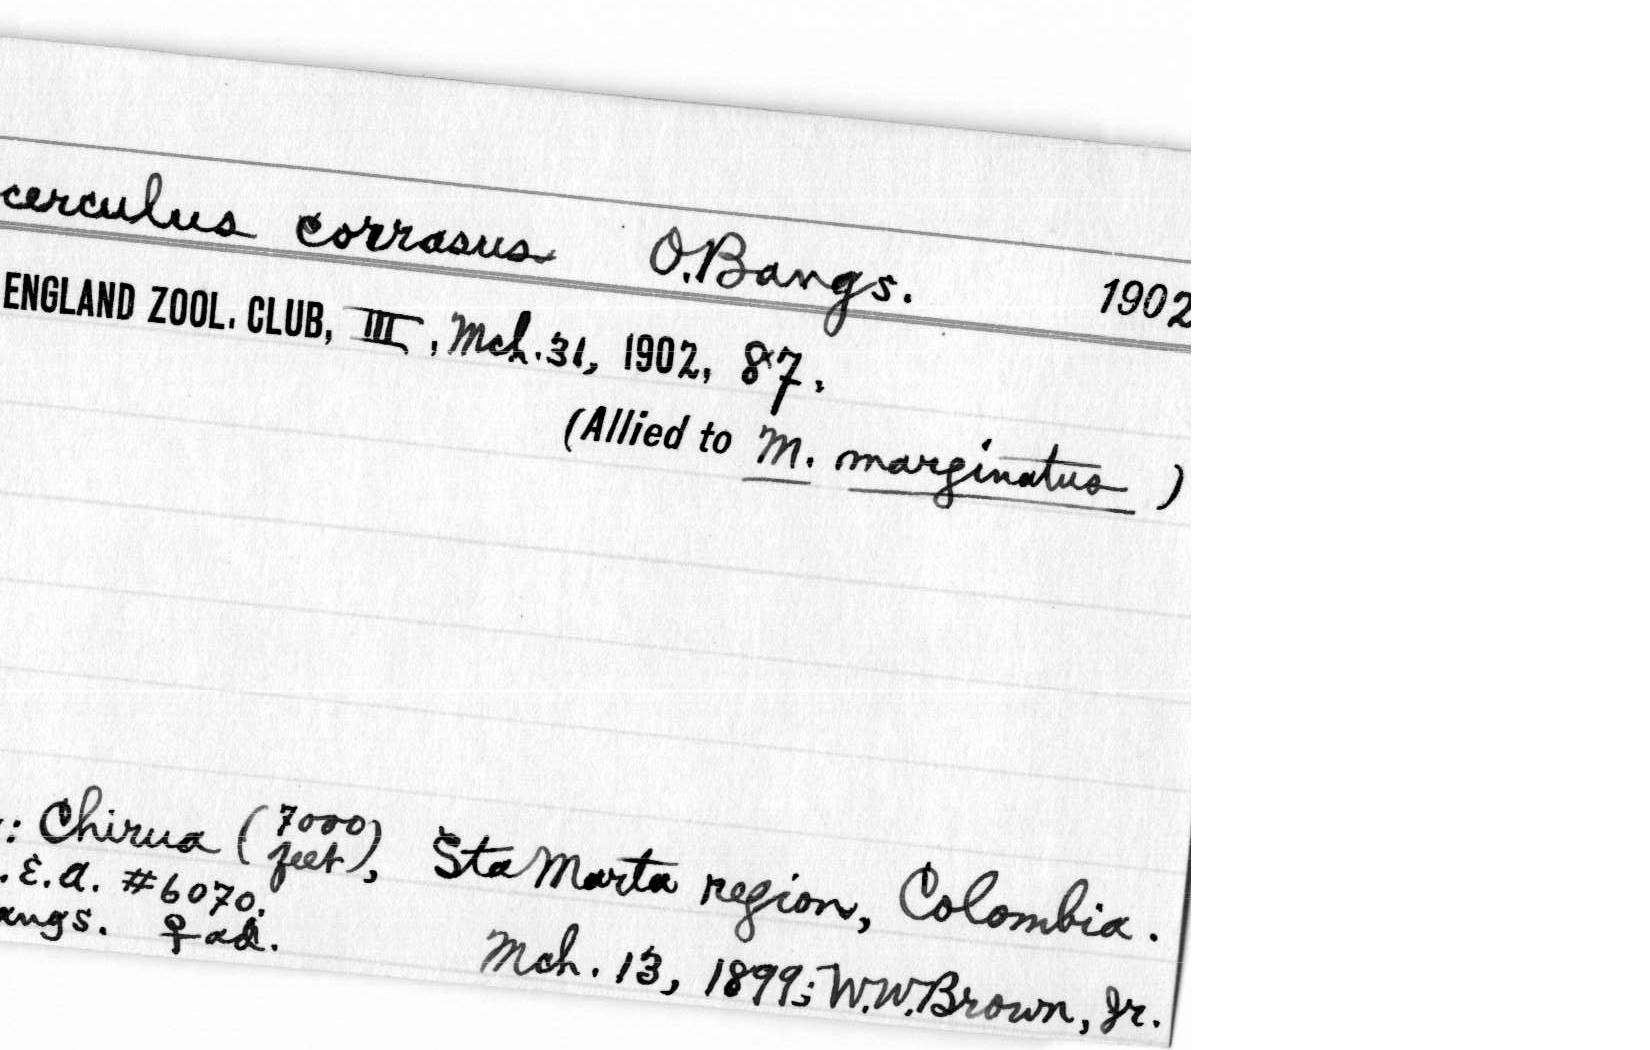 cerculus corrasus O.Bangs. 1902
ENGLAND ZOOL. CLUB, III, Mch. 31, 1902, 87.
(Allied to M. marginatus )
: Chirua (7000 feet), Sta Marta region, Colombia.
.E.A. #6070.
angs. ♀ ad. Mch. 13, 1899; W.W.Brown, Jr.